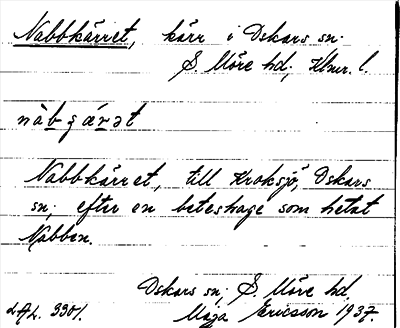 Nabbkärret, kärr i Oskars sn.
S. Möre hd, Klmr. l.
Nabbkärret, till Kroksjö, Oskars
sn; efter en beteshage som hetat
Nabben.
Oskars sn; S. Möre hd.
Maja Ericsson 1937.